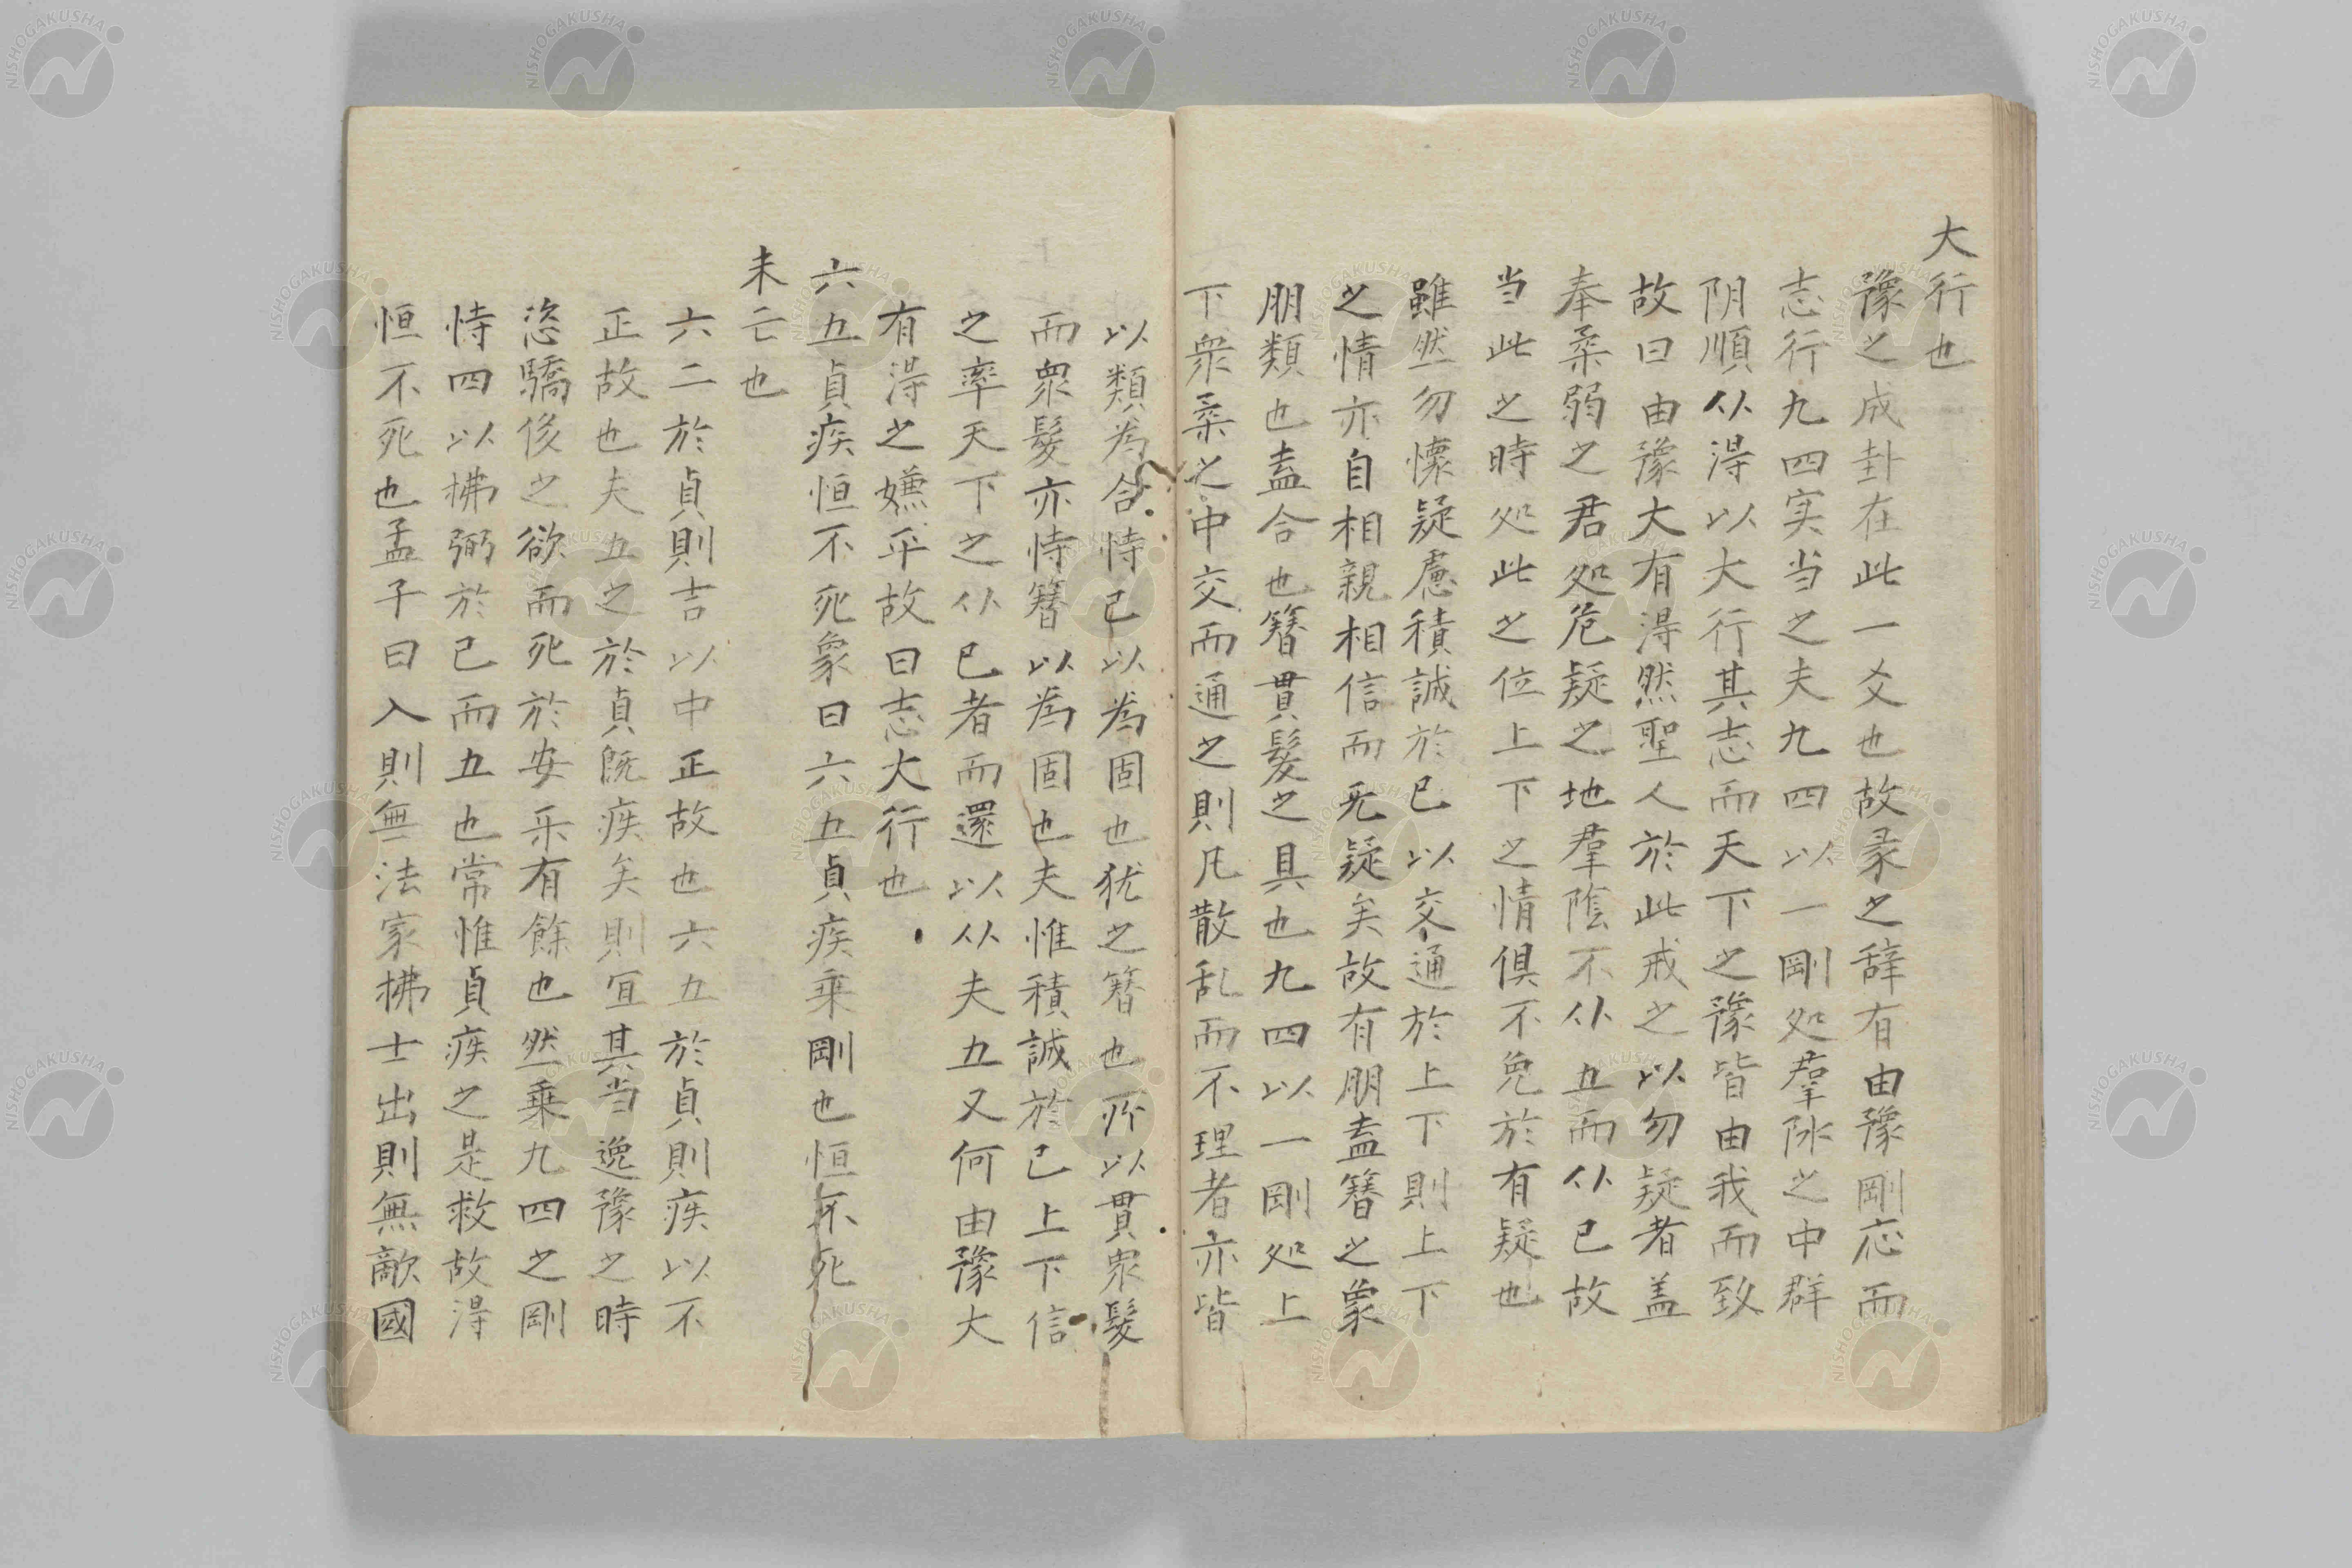 大行也
豫之成卦在此一爻也故彖之辞有由豫剛応而
志行九四実当之夫九四以一剛処羣阴之中群
阴順从得以大行其志而天下之豫皆由我而致
故曰由豫大有得然聖人於此戒之以勿疑者盖
奉柔弱之君処危疑之地羣陰不从五而从已故
当此之時処此之位上下之情倶不免於有疑也
雖然勿懐疑慮積誠於已以交通於上下則上下
之情亦自相親相信而无疑矣故有朋盍簪之象
朋類也盍合也簪貫髮之具也九四以一剛処上
下衆柔之中交而通之則凡散乱而不理者亦皆
以類為合恃已以為固也犹之簪也所以貫衆髮
而衆髮亦恃簪以為固也夫惟積誠於已上下信
之率天下之从已者而還以从夫五又何由豫大
有得之嫌乎故曰志大行也
六五貞疾恒不死象曰六五貞疾乗剛也恒不死
未亡也
六二於貞則吉以中正故也六五於貞則疾以不
正故也夫五之於貞既疾矣則宜其当逸豫之時
恣驕侈之欲而死於安乐有餘也然乗九四之剛
恃四以拂弼於已而五也常惟貞疾之是救故得
恒不死也孟子曰入則無法家拂士出則無敵國
NISHOGAKUSHA